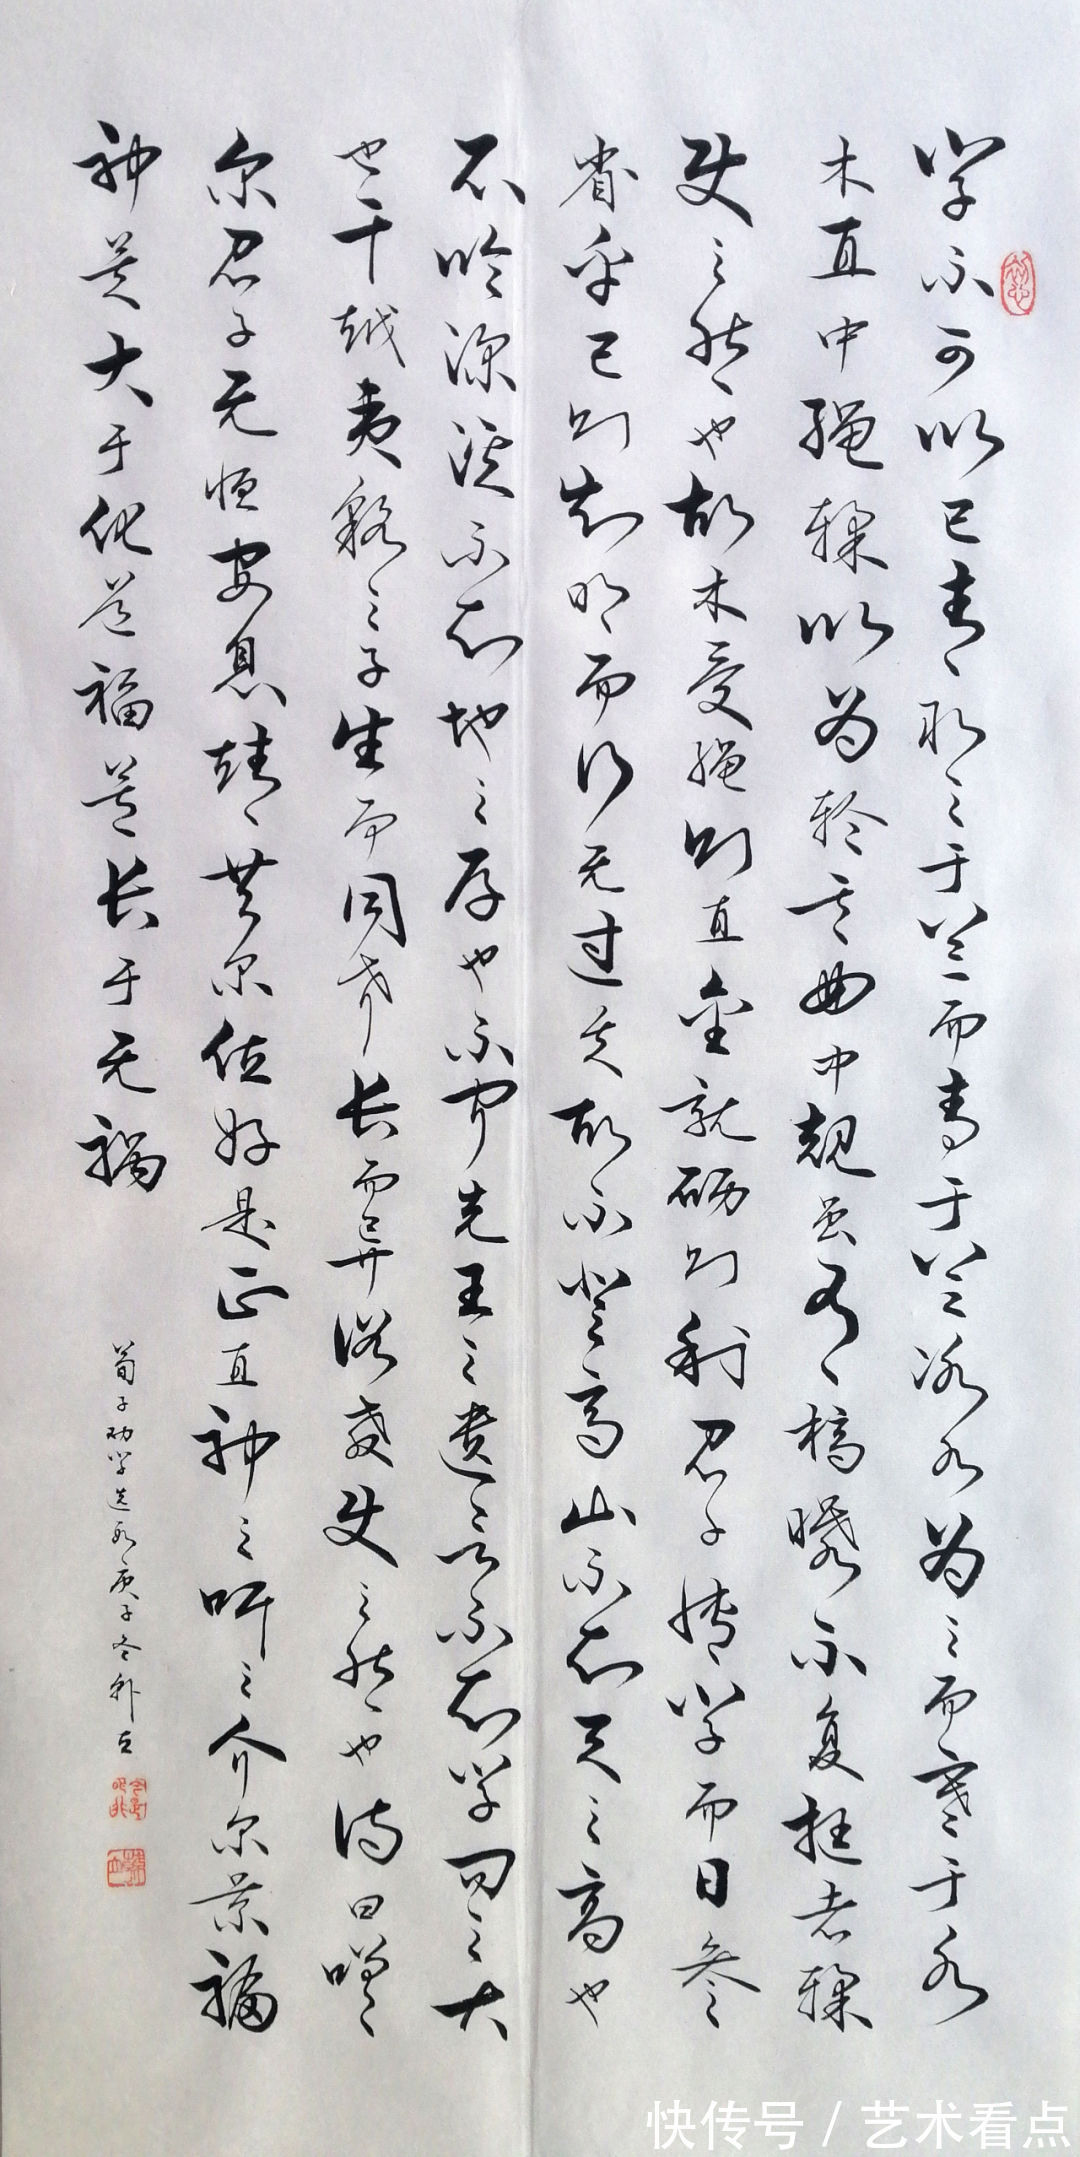 学不可以已青取之于兰而青于兰冰水为之而寒于水
木直中绳𫐓以为轮其曲中规虽有槁曝不复挺者𫐓
使之然也故木受绳则直金就砺则利君子博学而日参
省乎己则知明而行无过矣故不登高山不知天之高也
不临深溪不知地之厚也不闻先王之遗言不知学问之大
也干越夷貉之子生而同声长而异俗教使之然也诗曰嗟
尔君子无恒安息靖共尔位好是正直神之听之介尔景福
神莫大于化道福莫长于无祸
荀子劝学选 庚子冬
快传号 / 艺术看点